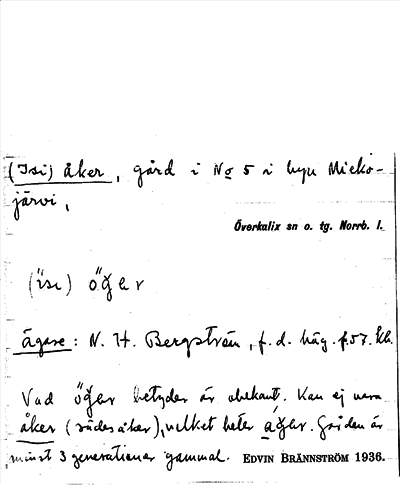 (Isi) åker, gård i No 5 i byn Mieko-
järvi,
Överkalix sn o. tg. Norrb. l.
(ïsı) ö̆ger
ägare: N. H. Bergström, f. d. häg. f. 57. kb.
Vad ö̆ger betyder är obekant. Kan ej vara
åker (sädesåker), vilket heter ager. Gården är
minst 3 generationer gammal. EDVIN BRÄNNSTRÖM 1936.